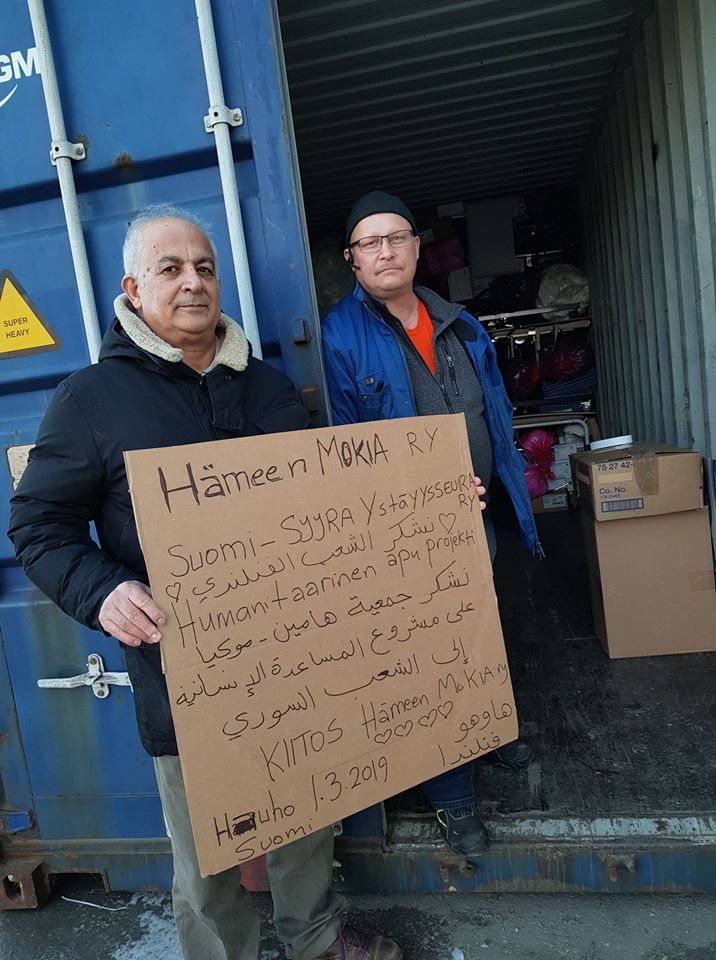 GM
SUPER
HEAVY
Hämeen MOKIA RY
SUOMI-SYYRA YstäYYSSEURA RY
♡ نشكر الشعب الفنلندي ♡
Humanitaarinen apu projekti
نشكر جمعية هامين - موكيا
على مشروع المساعدة الإنسانية
إلى الشعب السوري
KIITOS Hämeen MoKIA ry
♡♡♡♡
هاوهو
فنلندا
Hauho 1.3.2019
Suomi
75 27 42
Co. No.